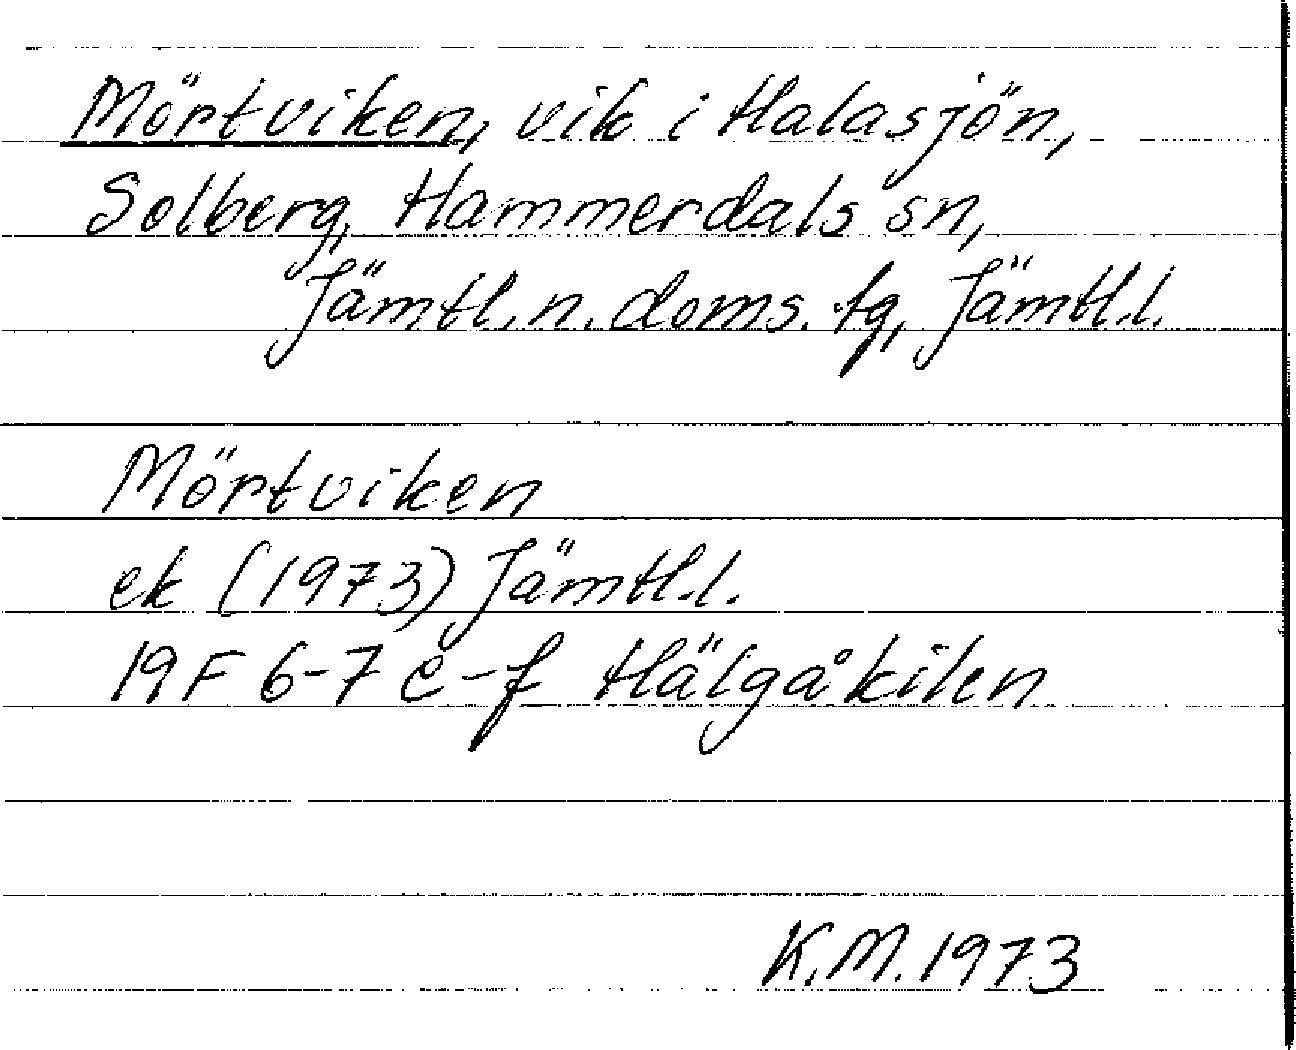 Mörtviken, vik i Halasjön,
Solberg, Hammerdals sn,
Jämtl. n. doms. tg, Jämtl.l.
Mörtviken
ek (1973) Jämtl.l.
19F 6-7 e-f Hälgåkilen
K.M. 1973